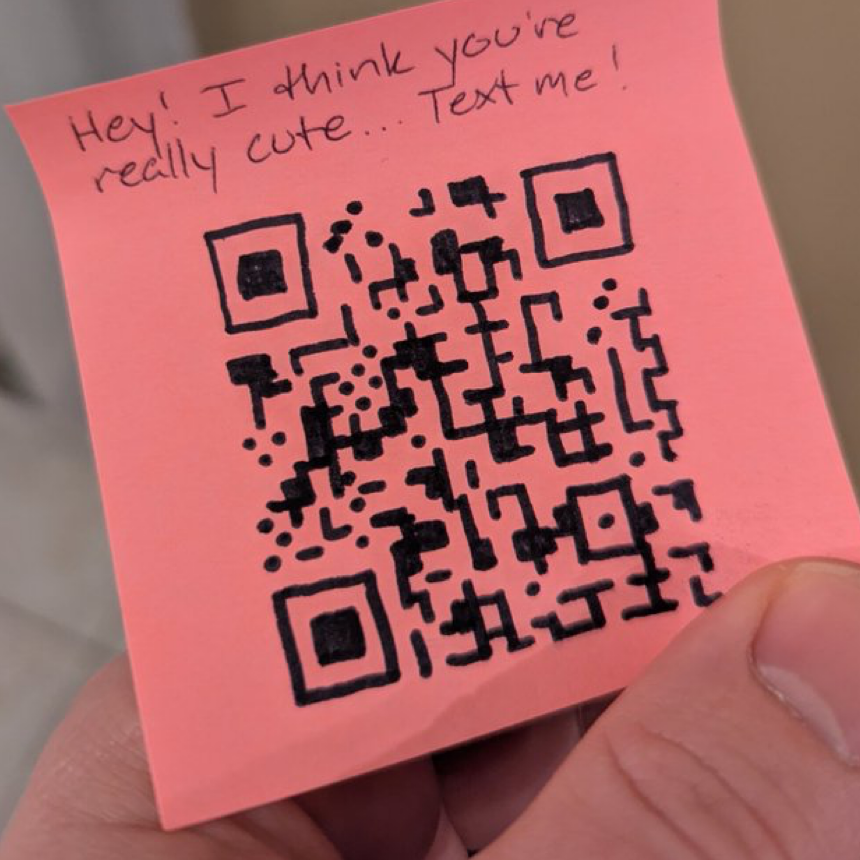 Hey! I think you're
really cute... Text me!